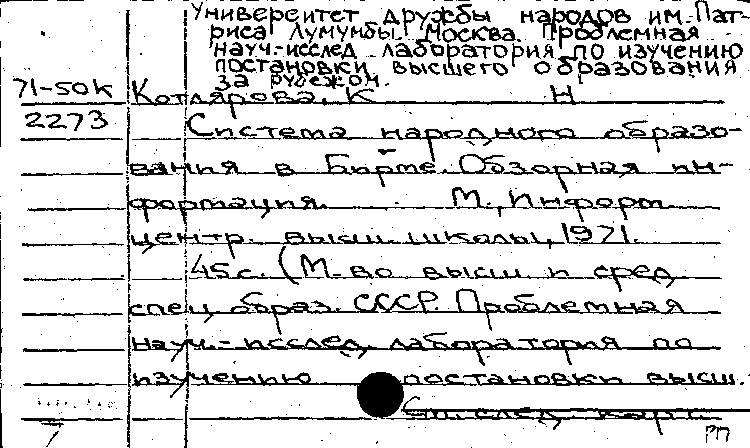 Университет дружбы народов им. Пат-
риса Лумумбы. Москва. Проблемная
науч.-исслед. лаборатория по изучению
постановки высшего образования
за рубежом.
71-50К Котлярова, К Н
2273 Система народного образо-
вания в Бирме. Обзорная ин-
формация. М., Информ.
центр. высш. школы, 1971.
45 с. (М-во высш. и сред.
спец. образ. СССР. Проблемная
науч.-исслед. лаборатория по
изучению постановки высш.
См. след. карт.
РП